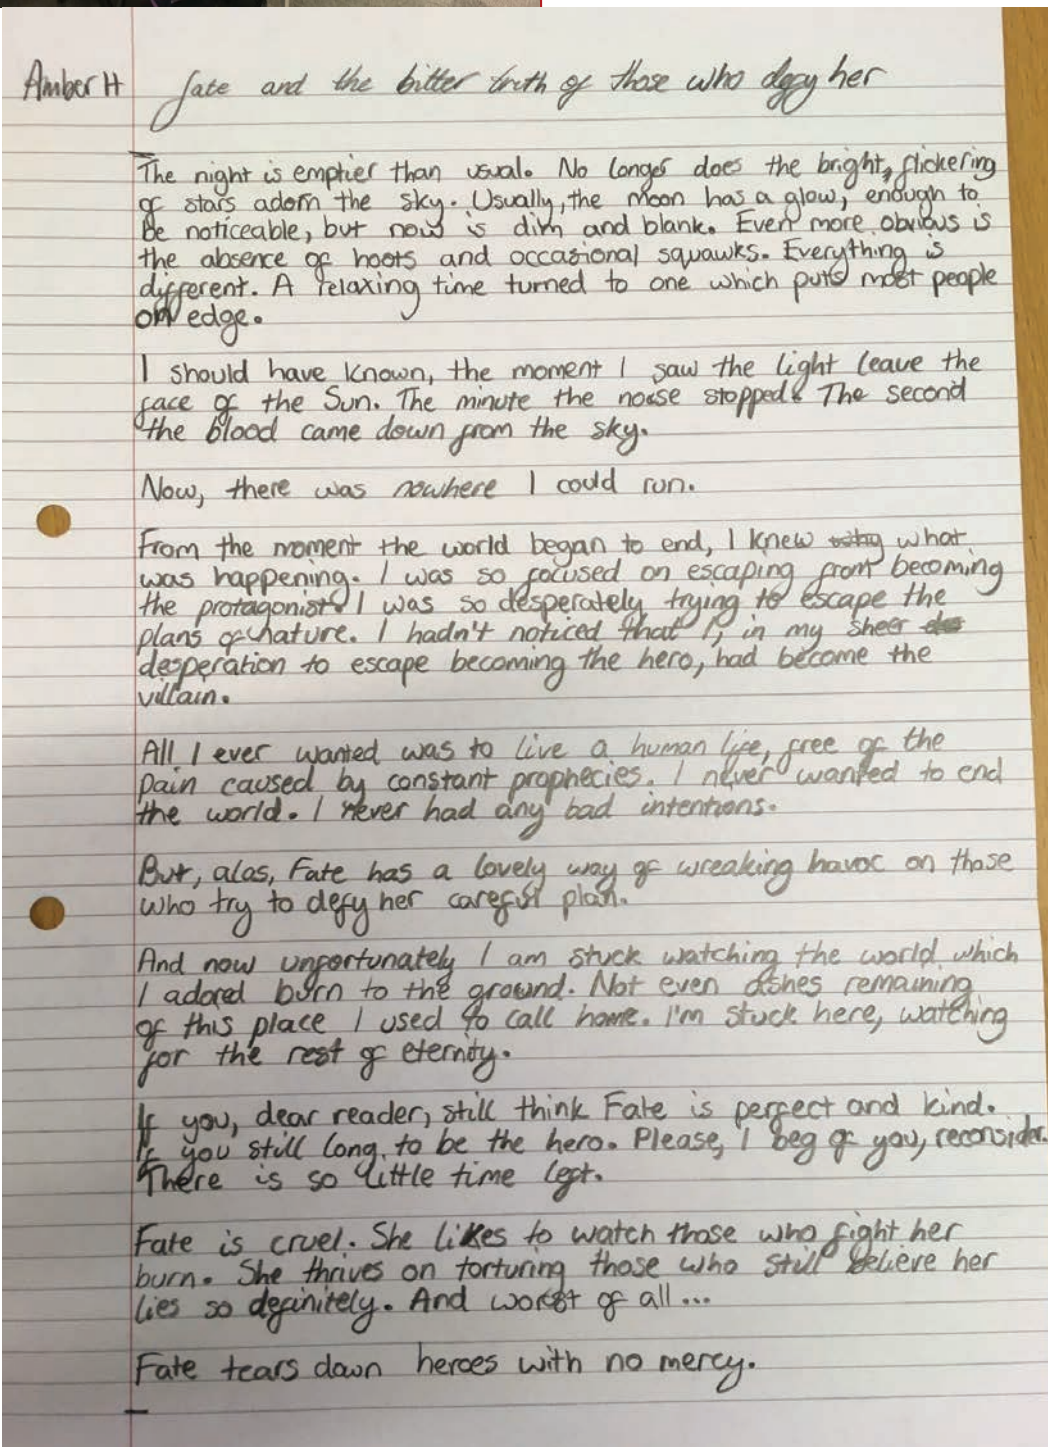 Amber H fate and the bitter truth of those who defy her
The night is emptier than usual. No longer does the bright, flickering
of stars adorn the sky. Usually, the moon has a glow, enough to
be noticeable, but now is dim and blank. Even more obvious is
the absence of hoots and occasional squawks. Everything is
different. A relaxing time turned to one which puts most people
on edge.
I should have known, the moment I saw the light leave the
face of the Sun. The minute the noise stopped. The second
the blood came down from the sky.
Now, there was nowhere I could run.
From the moment the world began to end, I knew what
was happening. I was so focused on escaping from becoming
the protagonist. I was so desperately trying to escape the
plans of nature. I hadn't noticed that I, in my sheer
desperation to escape becoming the hero, had become the
villain.
All I ever wanted was to live a human life, free of the
pain caused by constant prophecies. I never wanted to end
the world. I never had any bad intentions.
But, alas, Fate has a lovely way of wreaking havoc on those
who try to defy her careful plan.
And now unfortunately I am stuck watching the world which
I adored burn to the ground. Not even ashes remaining
of this place I used to call home. I'm stuck here, watching
for the rest of eternity.
If you, dear reader, still think Fate is perfect and kind.
If you still long to be the hero. Please, I beg of you, reconsider.
There is so little time left.
Fate is cruel. She likes to watch those who fight her
burn. She thrives on torturing those who still believe her
lies so definitely. And worst of all...
Fate tears down heroes with no mercy.